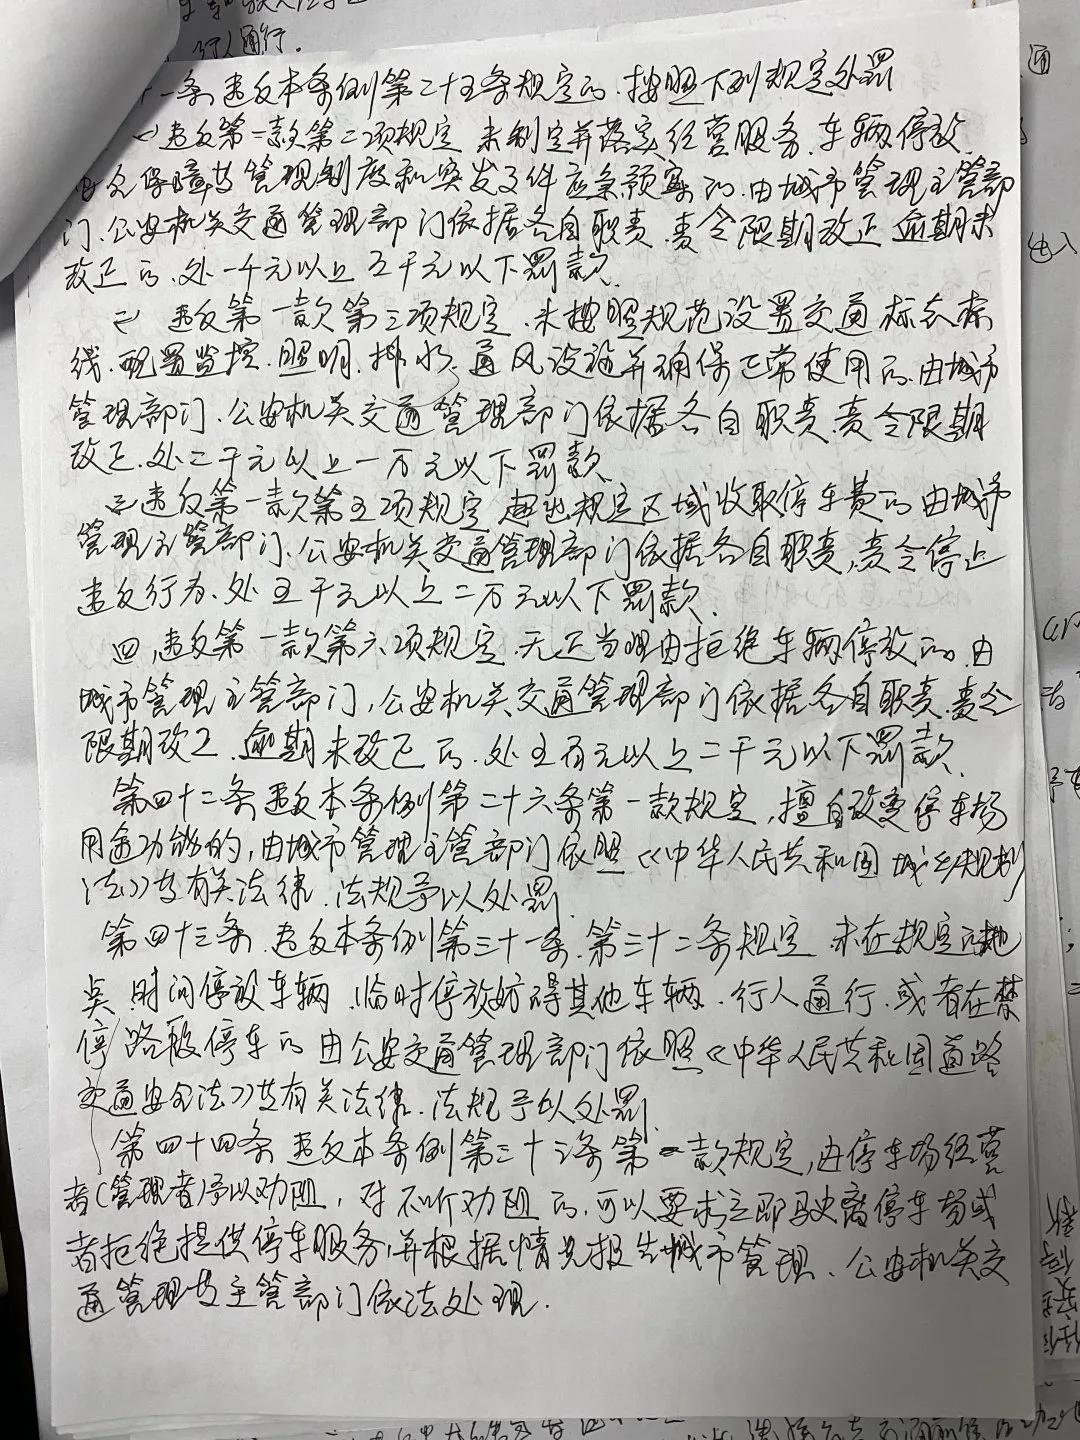 行人通行.
十一条 违反本条例第二十五条规定的.按照下列规定处罚
(一)违反第一款第二项规定 未制定并落实经营服务、车辆停放、
安全保障等管理制度和突发事件应急预案的.由城市管理主管部
门、公安机关交通管理部门依据各自职责.责令限期改正 逾期未
改正的、处一千元以上五千元以下罚款.
(二) 违反第一款第三项规定、未按照规范设置交通标志标
线、配置监控、照明、排水、通风设施并确保正常使用的.由城市
管理部门、公安机关交通管理部门依据各自职责.责令限期
改正.处二千元以上一万元以下罚款.
(三)违反第一款第五项规定 超出规定区域收取停车费的 由城市
管理主管部门、公安机关交通管理部门依据各自职责,责令停止
违反行为、处五千元以上二万元以下罚款.
四,违反第一款第六项规定.无正当理由拒绝车辆停放的.由
城市管理主管部门,公安机关交通管理部门依据各自职责.责令
限期改正、逾期未改正的、处五百元以上二千元以下罚款.
第四十二条 违反本条例第二十六条第一款规定,擅自改变停车场
用途功能的,由城市管理主管部门依照《中华人民共和国城乡规划
法》及有关法律、法规予以处罚.
第四十三条.违反本条例第三十一条、第三十二条规定.未在规定的地
点 时间停放车辆、临时停放妨碍其他车辆、行人通行、或者在禁
停路段停车的 由公安交通管理部门依照《中华人民共和国道路
交通安全法》及有关法律、法规予以处罚.
第四十四条 违反本条例第三十三条第一款规定,由停车场经营
者(管理者)予以劝阻,对不听劝阻的,可以要求立即驶离停车场或
者拒绝提供停车服务,并根据情况报告城市管理、公安机关交
通管理等主管部门依法处理.